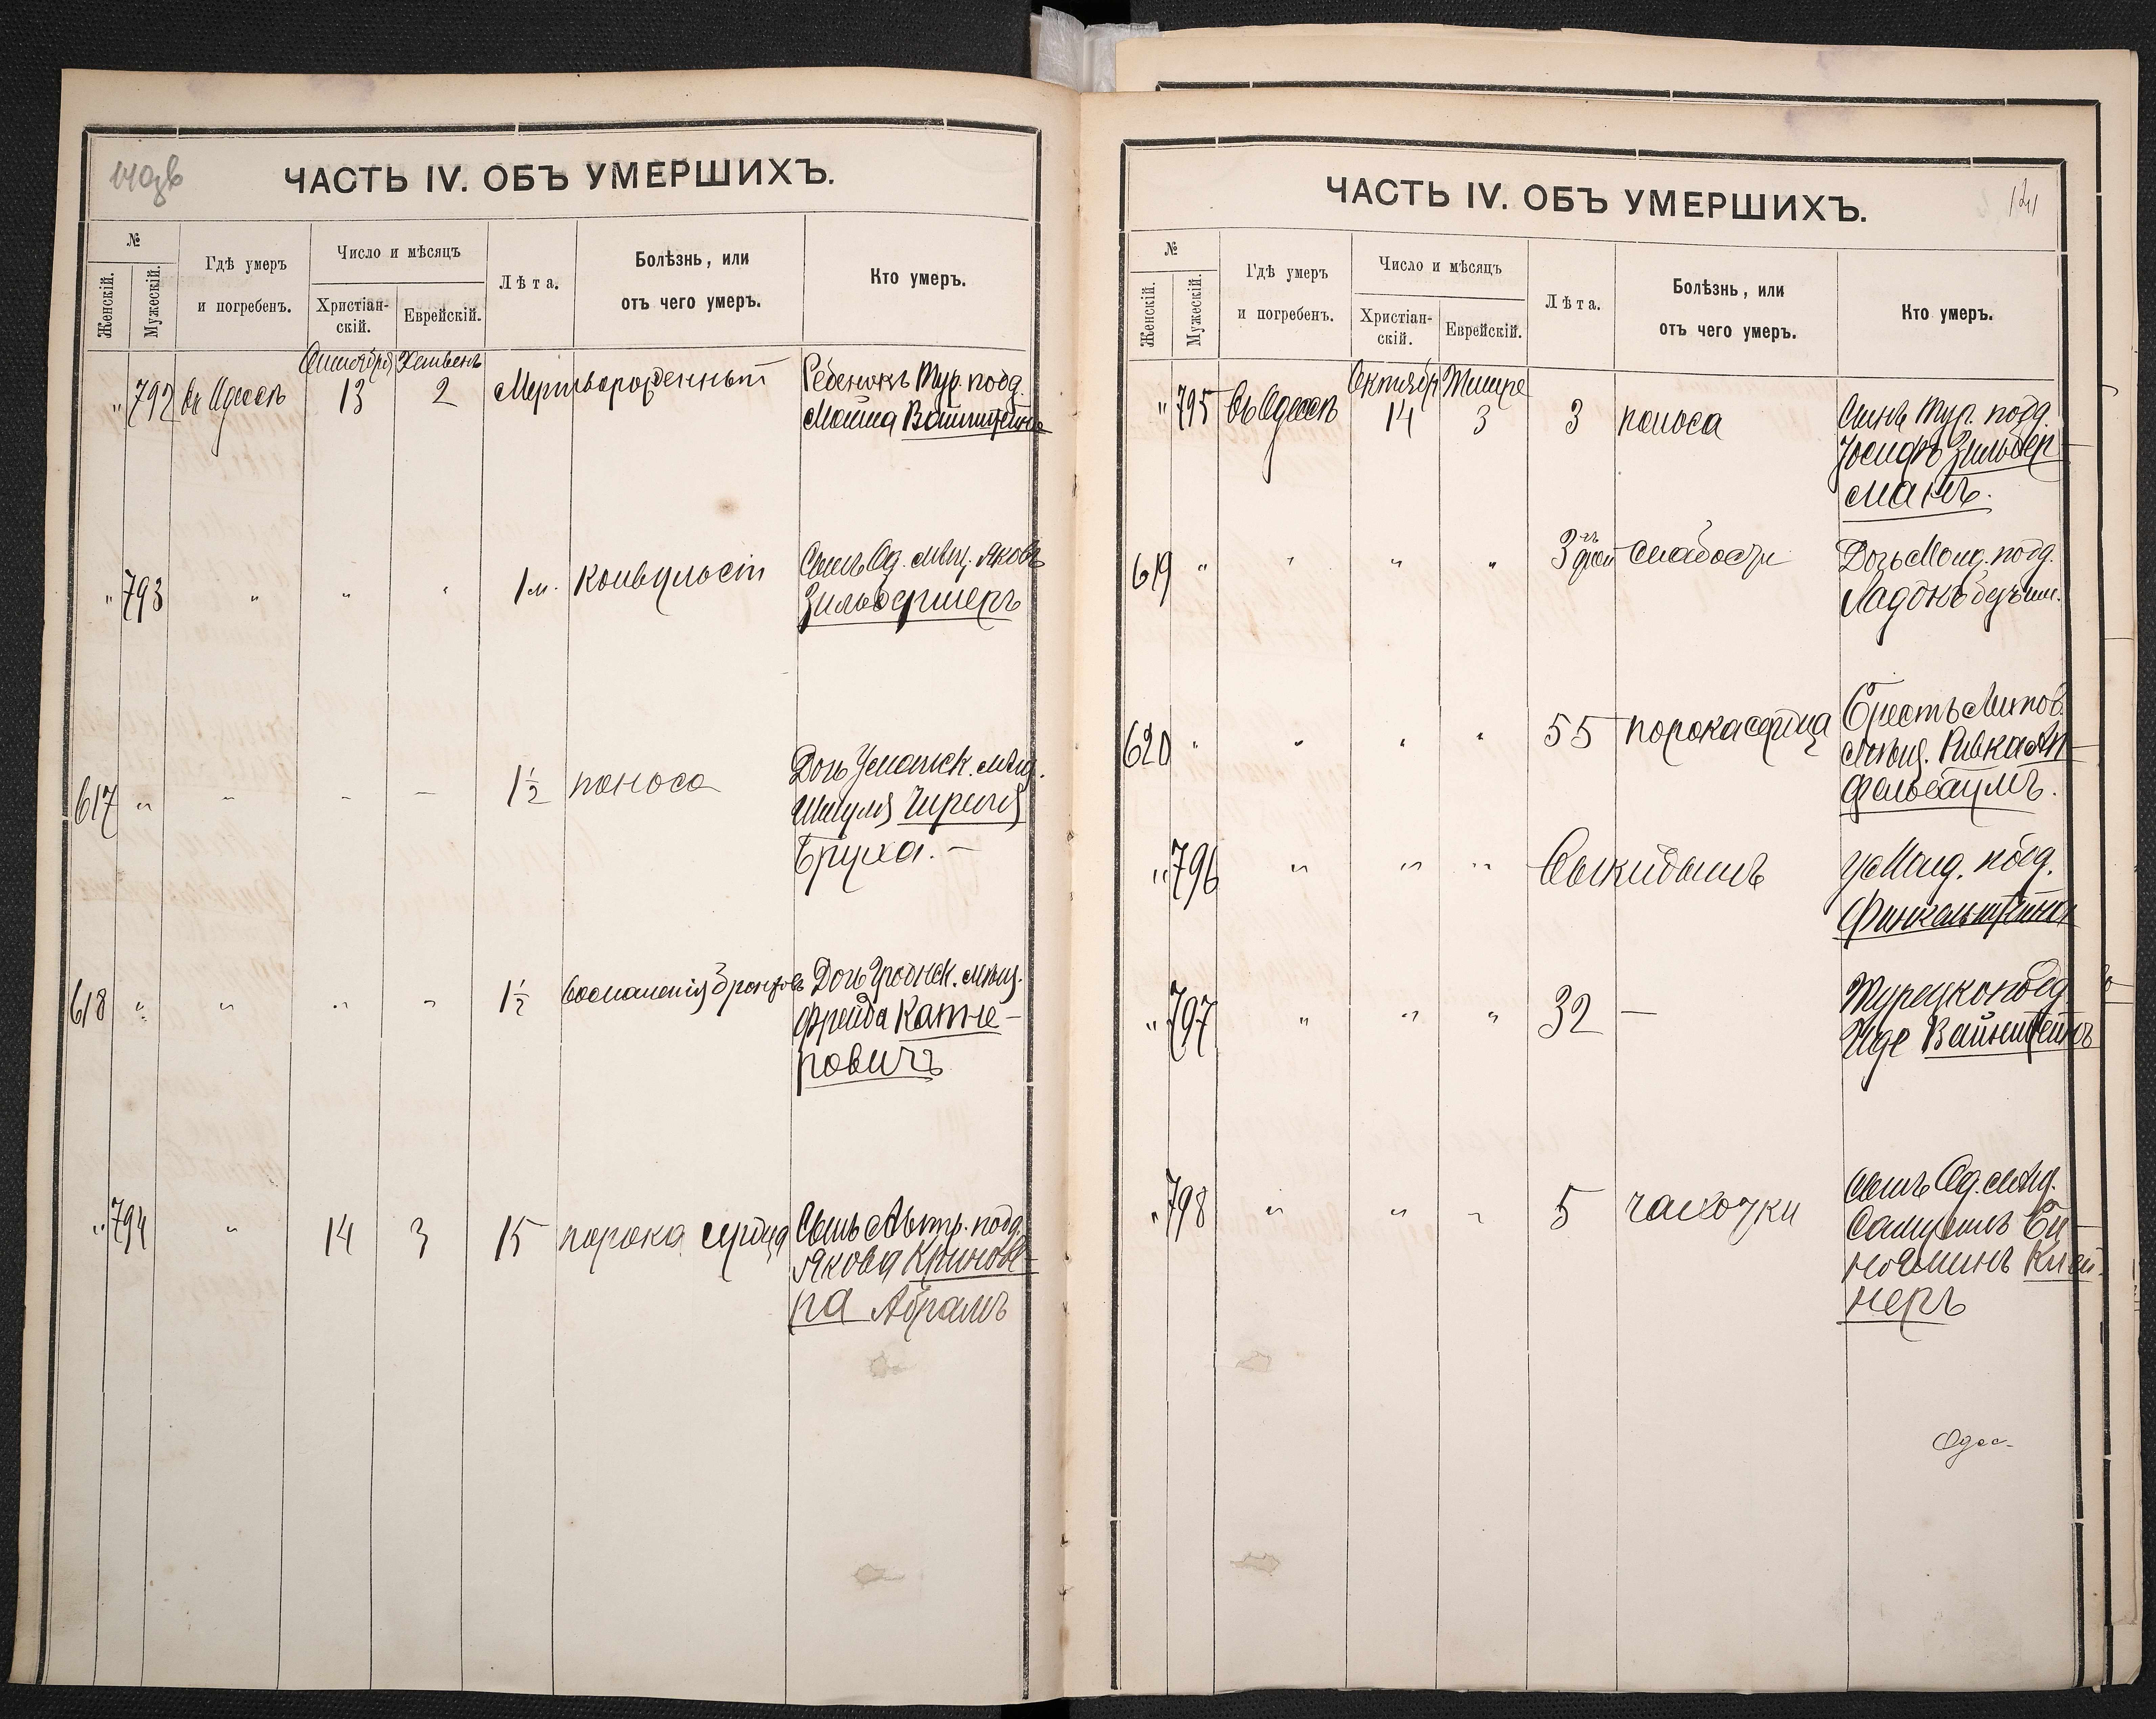 140об
ЧАСТЬ IV. ОБЪ УМЕРШИХЪ.
№
Женскій.
Мужескій.
Гдѣ умеръ
и погребенъ.
Число и мѣсяцъ
Христіан-
скій.
Еврейскій.
Лѣта.
Болѣзнь, или
отъ чего умеръ.
Кто умеръ.
Октября Хешвень
" 792 въ Одессѣ 13 2 Мертворожденный Ребенокъ Тур. подд.
Мошка Вайнштейна
" 793 " " " 1 м. Конвульсіи Сынъ Од. мѣщ. Яковъ
Зильбершеръ
617 " " " " 1½ поноса Дочь Уманск. мѣщ.
Шмуля
Бруха. —
618 " " " " 1½ воспаленія бронховъ Дочь Гродненск. мѣщ.
Фрейда Капле-
ровичъ
" 794 " 14 3 15 порока сердца Сынъ Австр. подд.
Якова Криновѣ-
ра Абрамъ
ЧАСТЬ IV. ОБЪ УМЕРШИХЪ.
141
№
Женскій.
Мужескій.
Гдѣ умеръ
и погребенъ.
Число и мѣсяцъ
Христіан-
скій.
Еврейскій.
Лѣта.
Болѣзнь, или
отъ чего умеръ.
Кто умеръ.
Октября Тишре
" 795 въ Одессѣ 14 3 3 поноса Сынъ Тур. подд.
Іосифъ Зильбер-
манъ.
619 " " " " 3 дней слабости Дочь Молд. подд.
Ладокъ безъ им.
620 " " " " 55 порока сердца Брестъ Литов.
мѣщ. Ривка Ап-
фельбаумъ.
" 796 " " " Выкидышъ у Молд. подд.
Финкельштейна
" 797 " " " 32 — Турецко подд.
Иде Вайнштейнъ
" 798 " " " 5 чахотки Сынъ Од. мѣщ.
Самуилъ Би-
ньяминъ Клей-
неръ
Одес-